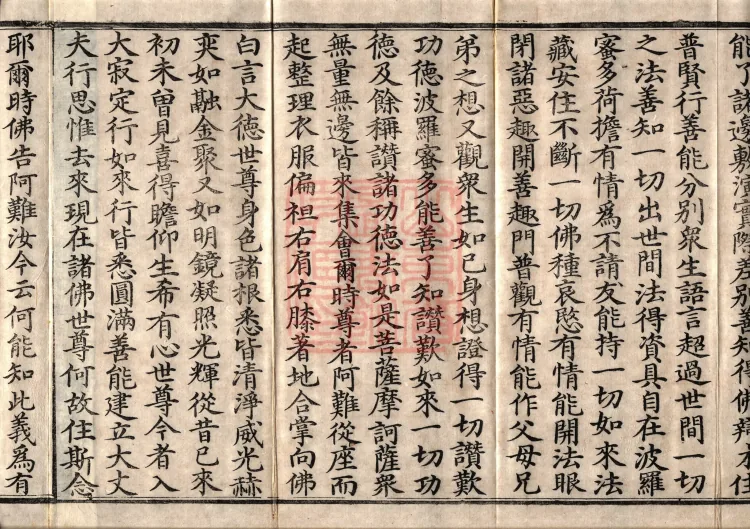 能了諸邊敷演實際差別善知得佛辯才住
普賢行善能分別衆生語言超過世間一切
之法善知一切出世間法得資具自在波羅
蜜多荷擔有情爲不請友能持一切如來法
藏安住不斷一切佛種哀愍有情能開法眼
閉諸惡趣開善趣門普觀有情能作父母兄
弟之想又觀衆生如己身想證得一切讚歎
功德波羅蜜多能善了知讚歎如來一切功
德及餘稱讚諸功德法如是菩薩摩訶薩衆
無量無邊皆來集會爾時尊者阿難從座而
起整理衣服偏袒右肩右膝著地合掌向佛
白言大德世尊身色諸根悉皆清淨威光赫
奕如融金聚又如明鏡凝照光輝從昔已來
初未曾見喜得瞻仰生希有心世尊今者入
大寂定行如來行皆悉圓滿善能建立大丈
夫行思惟去來現在諸佛世尊何故住斯念
耶爾時佛告阿難汝今云何能知此義爲有